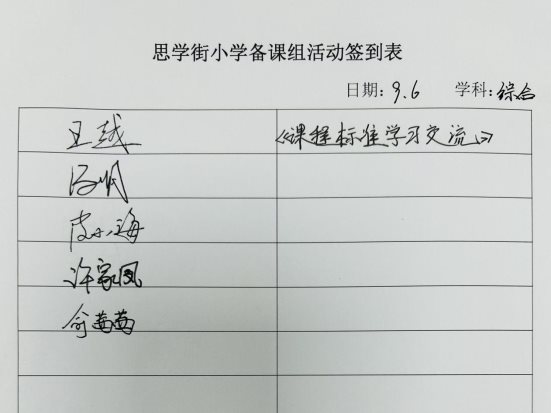 思学街小学备课组活动签到表
日期：9.6 学科：综合
王越 《课程标准学习交流》
皮小海
许家凤
俞茜茜